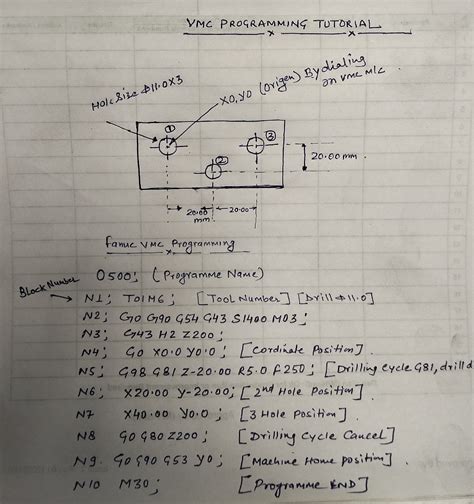 VMC PROGRAMMING TUTORIAL
Hole Size ϕ11.0X3
X0,Y0 (Origen) By dialing
on VMC M/c
①
②
③
20.00 mm
20.00
mm
20.00
Fanuc VMC Programming
O500; (Programme Name)
Block Number
N1; T01M6; [Tool Number] [Drill ϕ11.0]
N2; G0 G90 G54 G43 S1400 M03;
N3; G43 H2 Z200;
N4; G0 X0.0 Y0.0; [Cordinate Position].
N5; G98 G81 Z-20.00 R5.0 F250; [Drilling Cycle G81, drill d
N6; X20.00 Y-20.00; [2nd Hole Position]
N7 X40.00 Y0.0; [3 Hole Position]
N8 G0 G80 Z200; [Drilling Cycle Cancel]
N9. G0 G90 G53 Y0; [Machine Home position]
N10 M30; [Programme END]